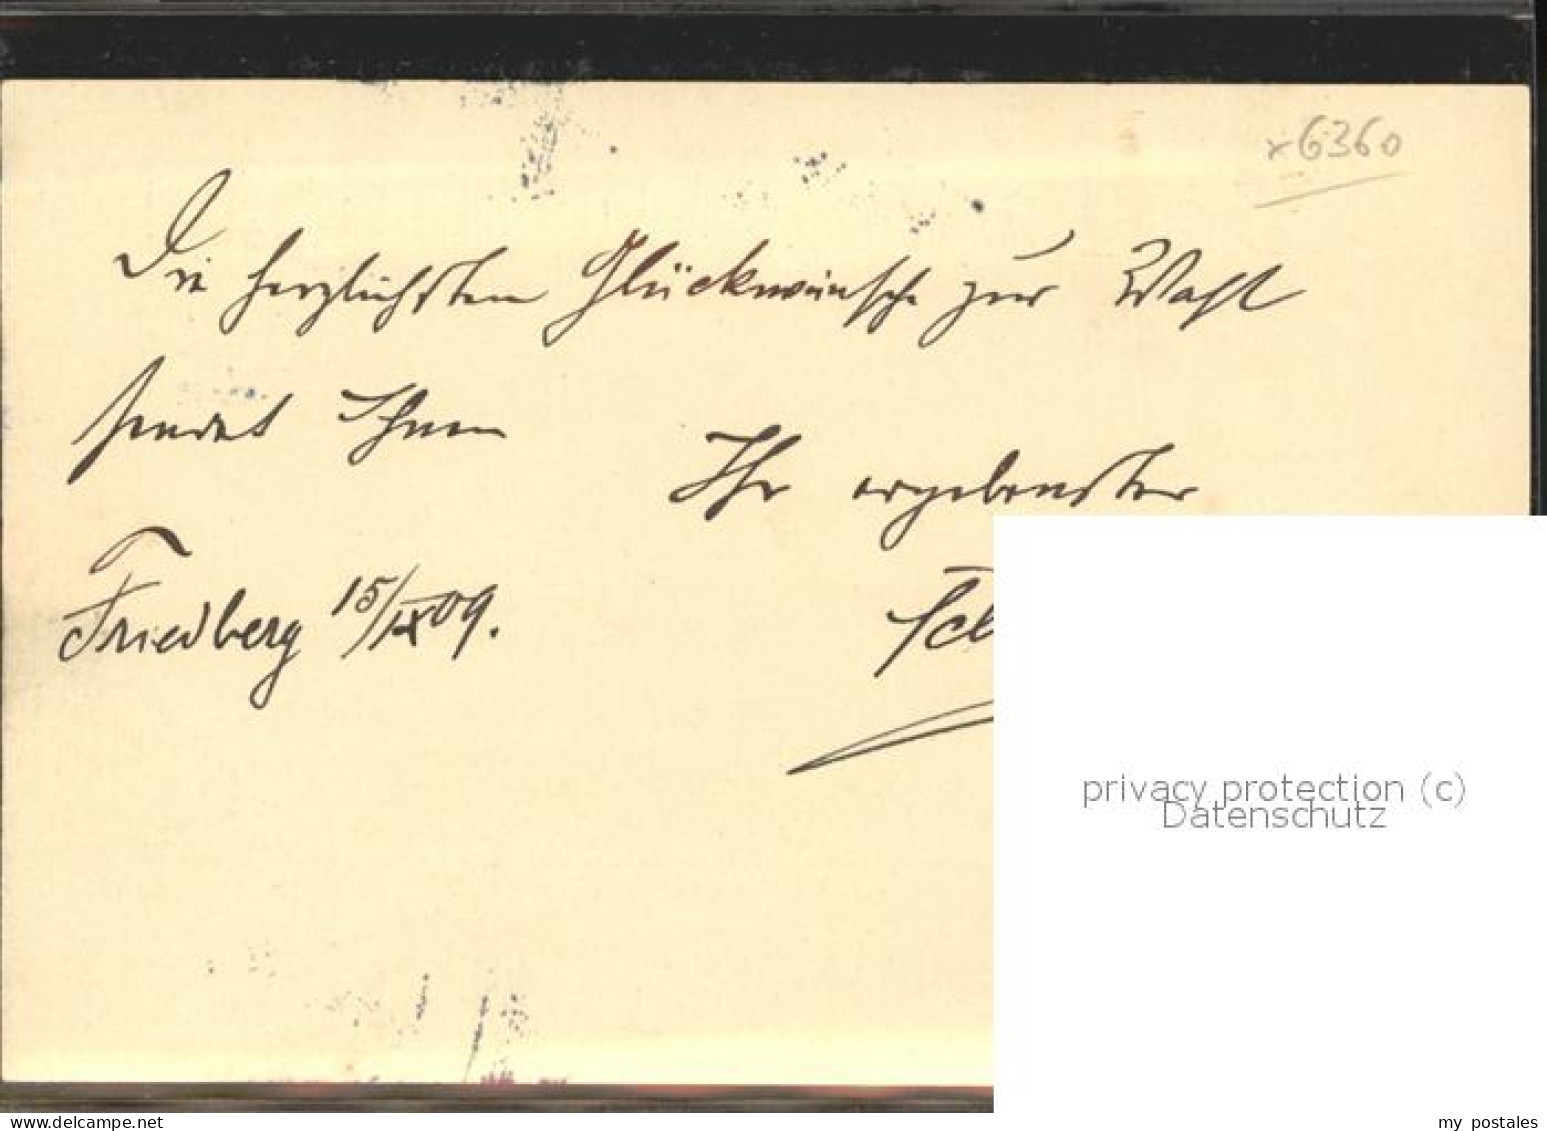 x 6360
Die herzlichsten Glückwünsche zur Wahl
sendet Ihnen
Ihr ergebenster
Friedberg 15/IX 09.
privacy protection (c)
Datenschutz
www.delcampe.net
my_postales